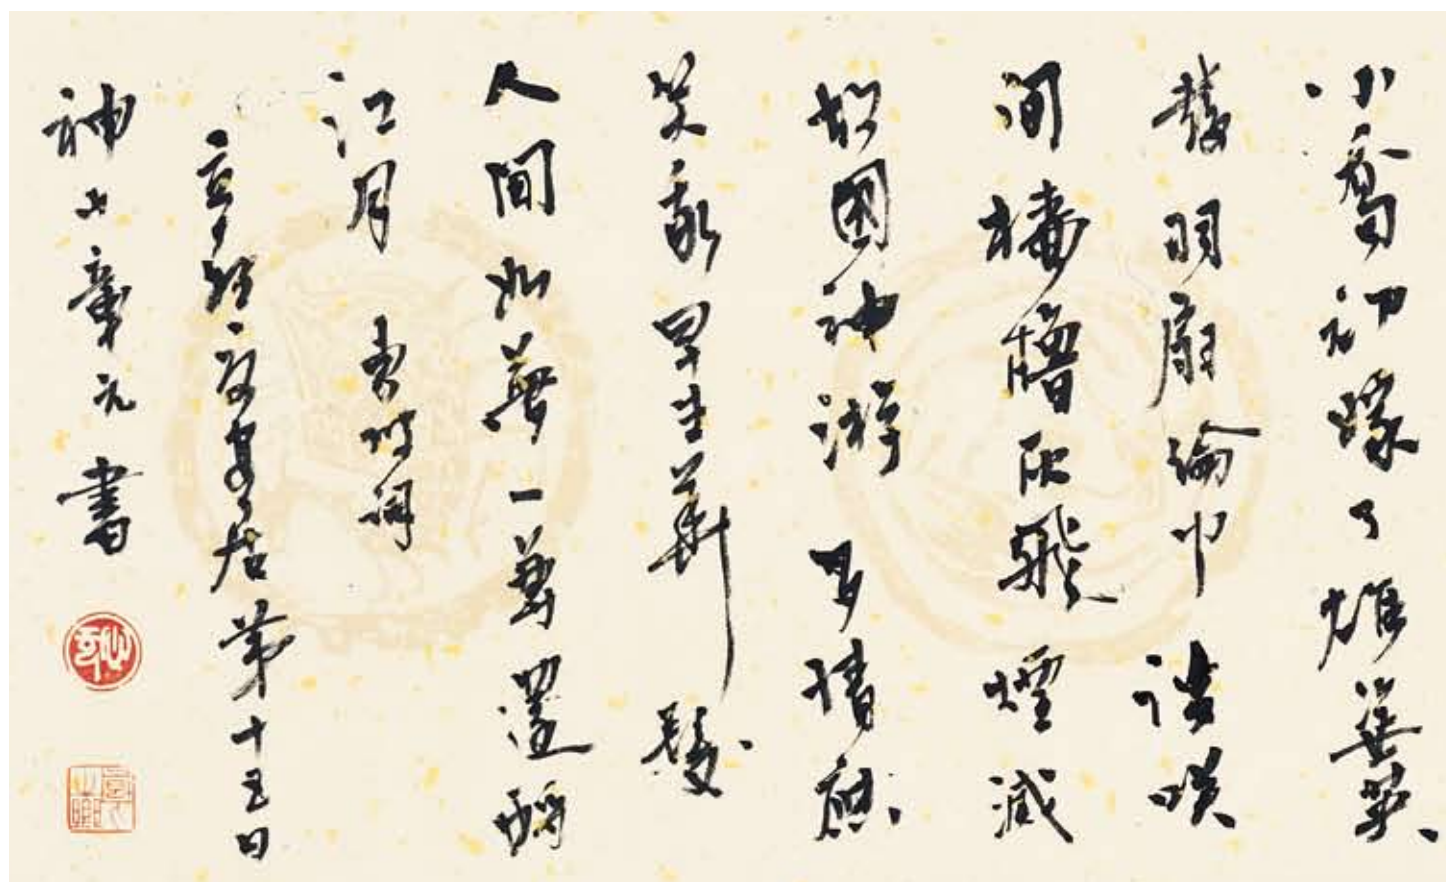 小喬初嫁了雄姿英
發羽扇綸巾談咲
間檣櫓灰飛煙滅
故國神游多情應
笑我早生華髮
人間如夢一尊還酹
江月 東坡詞
居第十五日
書